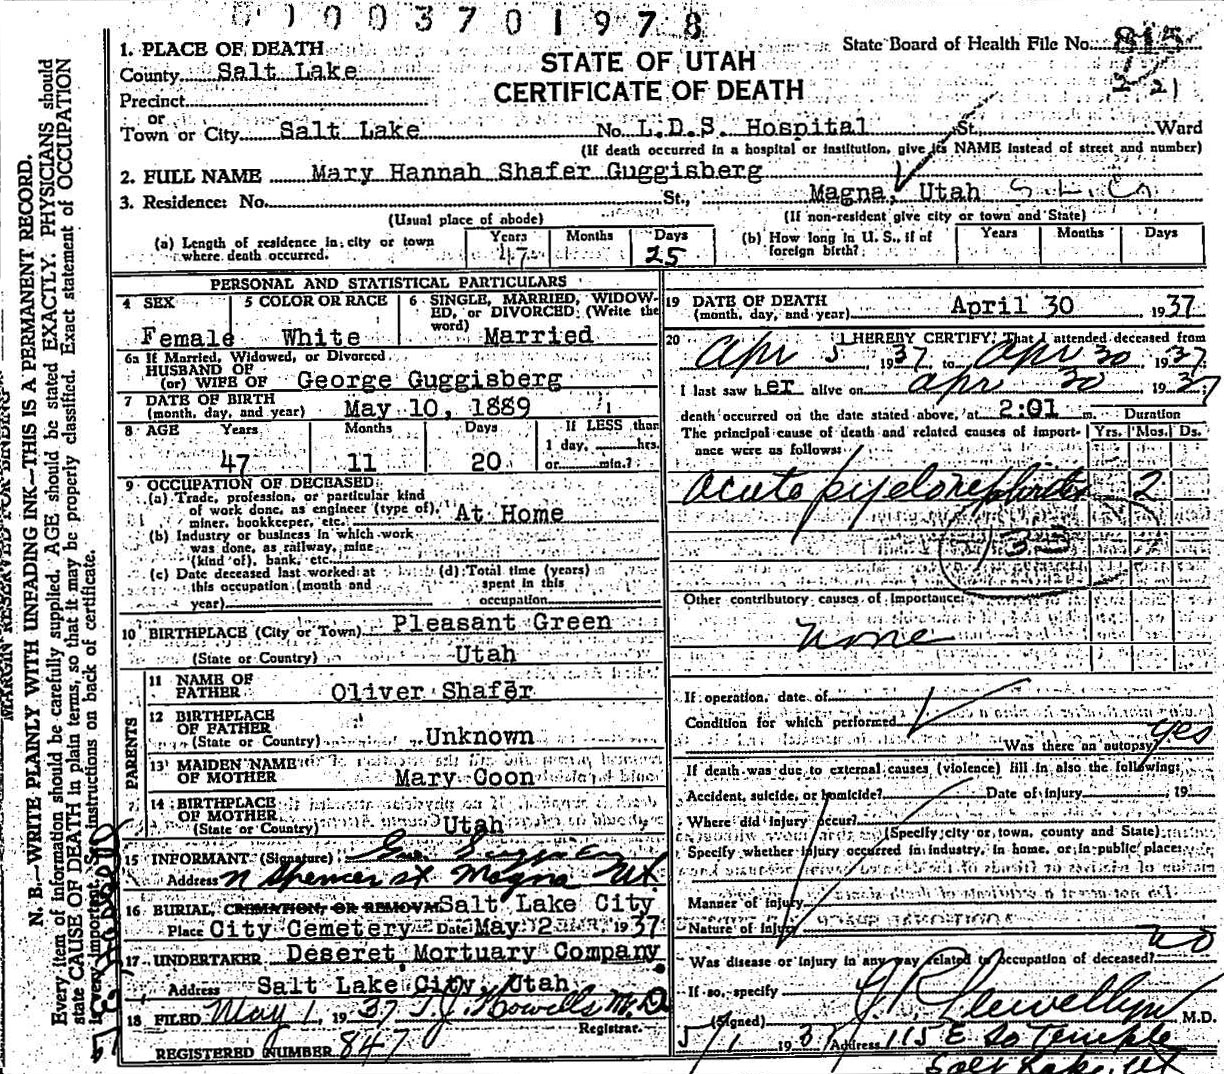 01003701978
1. PLACE OF DEATH
County Salt Lake
Precinct
or
Town or City Salt Lake No. L.D.S. Hospital St. Ward
(If death occurred in a hospital or institution, give its NAME instead of street and number)
STATE OF UTAH
CERTIFICATE OF DEATH
State Board of Health File No. 815
21
2. FULL NAME Mary Hannah Shafer Guggisberg
3. Residence: No. St., Magna, Utah S. L. Co
(Usual place of abode) (If non-resident give city or town and State)
(a) Length of residence in city or town where death occurred. Years 47 Months Days 25
(b) How long in U. S., if of foreign birth? Years Months Days
PERSONAL AND STATISTICAL PARTICULARS
4 SEX Female
5 COLOR OR RACE White
6 SINGLE, MARRIED, WIDOWED, or DIVORCED (Write the word) Married
6a If Married, Widowed, or Divorced
HUSBAND OF
(or) WIFE OF George Guggisberg
7 DATE OF BIRTH
(month, day, and year) May 10, 1889
8 AGE Years Months Days If LESS than
1 day, hrs.
47 11 20 or min.?
9 OCCUPATION OF DECEASED
(a) Trade, profession, or particular kind
of work done, as engineer (type of),
miner, bookkeeper, etc. At Home
(b) Industry or business in which work
was done, as railway, mine
(kind of), bank, etc.
(c) Date deceased last worked at
this occupation (month and
year)
(d) Total time (years)
spent in this
occupation
10 BIRTHPLACE (City or Town) Pleasant Green
(State or Country) Utah
PARENTS
11 NAME OF
FATHER Oliver Shafer
12 BIRTHPLACE
OF FATHER
(State or Country) Unknown
13 MAIDEN NAME
OF MOTHER Mary Coon
14 BIRTHPLACE
OF MOTHER
(State or Country) Utah
15 INFORMANT (Signature) Geo.
Address N Spencer St Magna Ut.
16 BURIAL, CREMATION, OR REMOVAL Salt Lake City
Place City Cemetery Date May 2 1937
17 UNDERTAKER Deseret Mortuary Company
Address Salt Lake City, Utah
18 FILED May 1, 1937 T. J. Howells M.D.
Registrar.
REGISTERED NUMBER 847
19 DATE OF DEATH
(month, day, and year) April 30, 1937
20 I HEREBY CERTIFY, That I attended deceased from
Apr 5, 1937 to Apr 30, 1937
I last saw her alive on Apr 30 1937
death occurred on the date stated above, at 2:01 m. Duration
The principal cause of death and related causes of importance were as follows: Yrs. Mos. Ds.
Acute pyelonephritis 2
133
Other contributory causes of importance:
None
If operation, date of
Condition for which performed
Was there an autopsy? Yes
If death was due to external causes (violence) fill in also the following:
Accident, suicide, or homicide? Date of injury , 19
Where did injury occur?
(Specify city or town, county and State)
Specify whether injury occurred in industry, in home, or in public place
Manner of injury
Nature of injury
Was disease or injury in any way related to occupation of deceased? No
If so, specify
(Signed) J. R. Llewellyn M.D.
5/1 1937 Address 115 E So Temple
Salt Lake, Ut
MARGIN RESERVED FOR BINDING
N. B.—WRITE PLAINLY WITH UNFADING INK—THIS IS A PERMANENT RECORD.
Every item of information should be carefully supplied. AGE should be stated EXACTLY. PHYSICIANS should
state CAUSE OF DEATH in plain terms, so that it may be properly classified. Exact statement of OCCUPATION
is very important. See instructions on back of certificate.